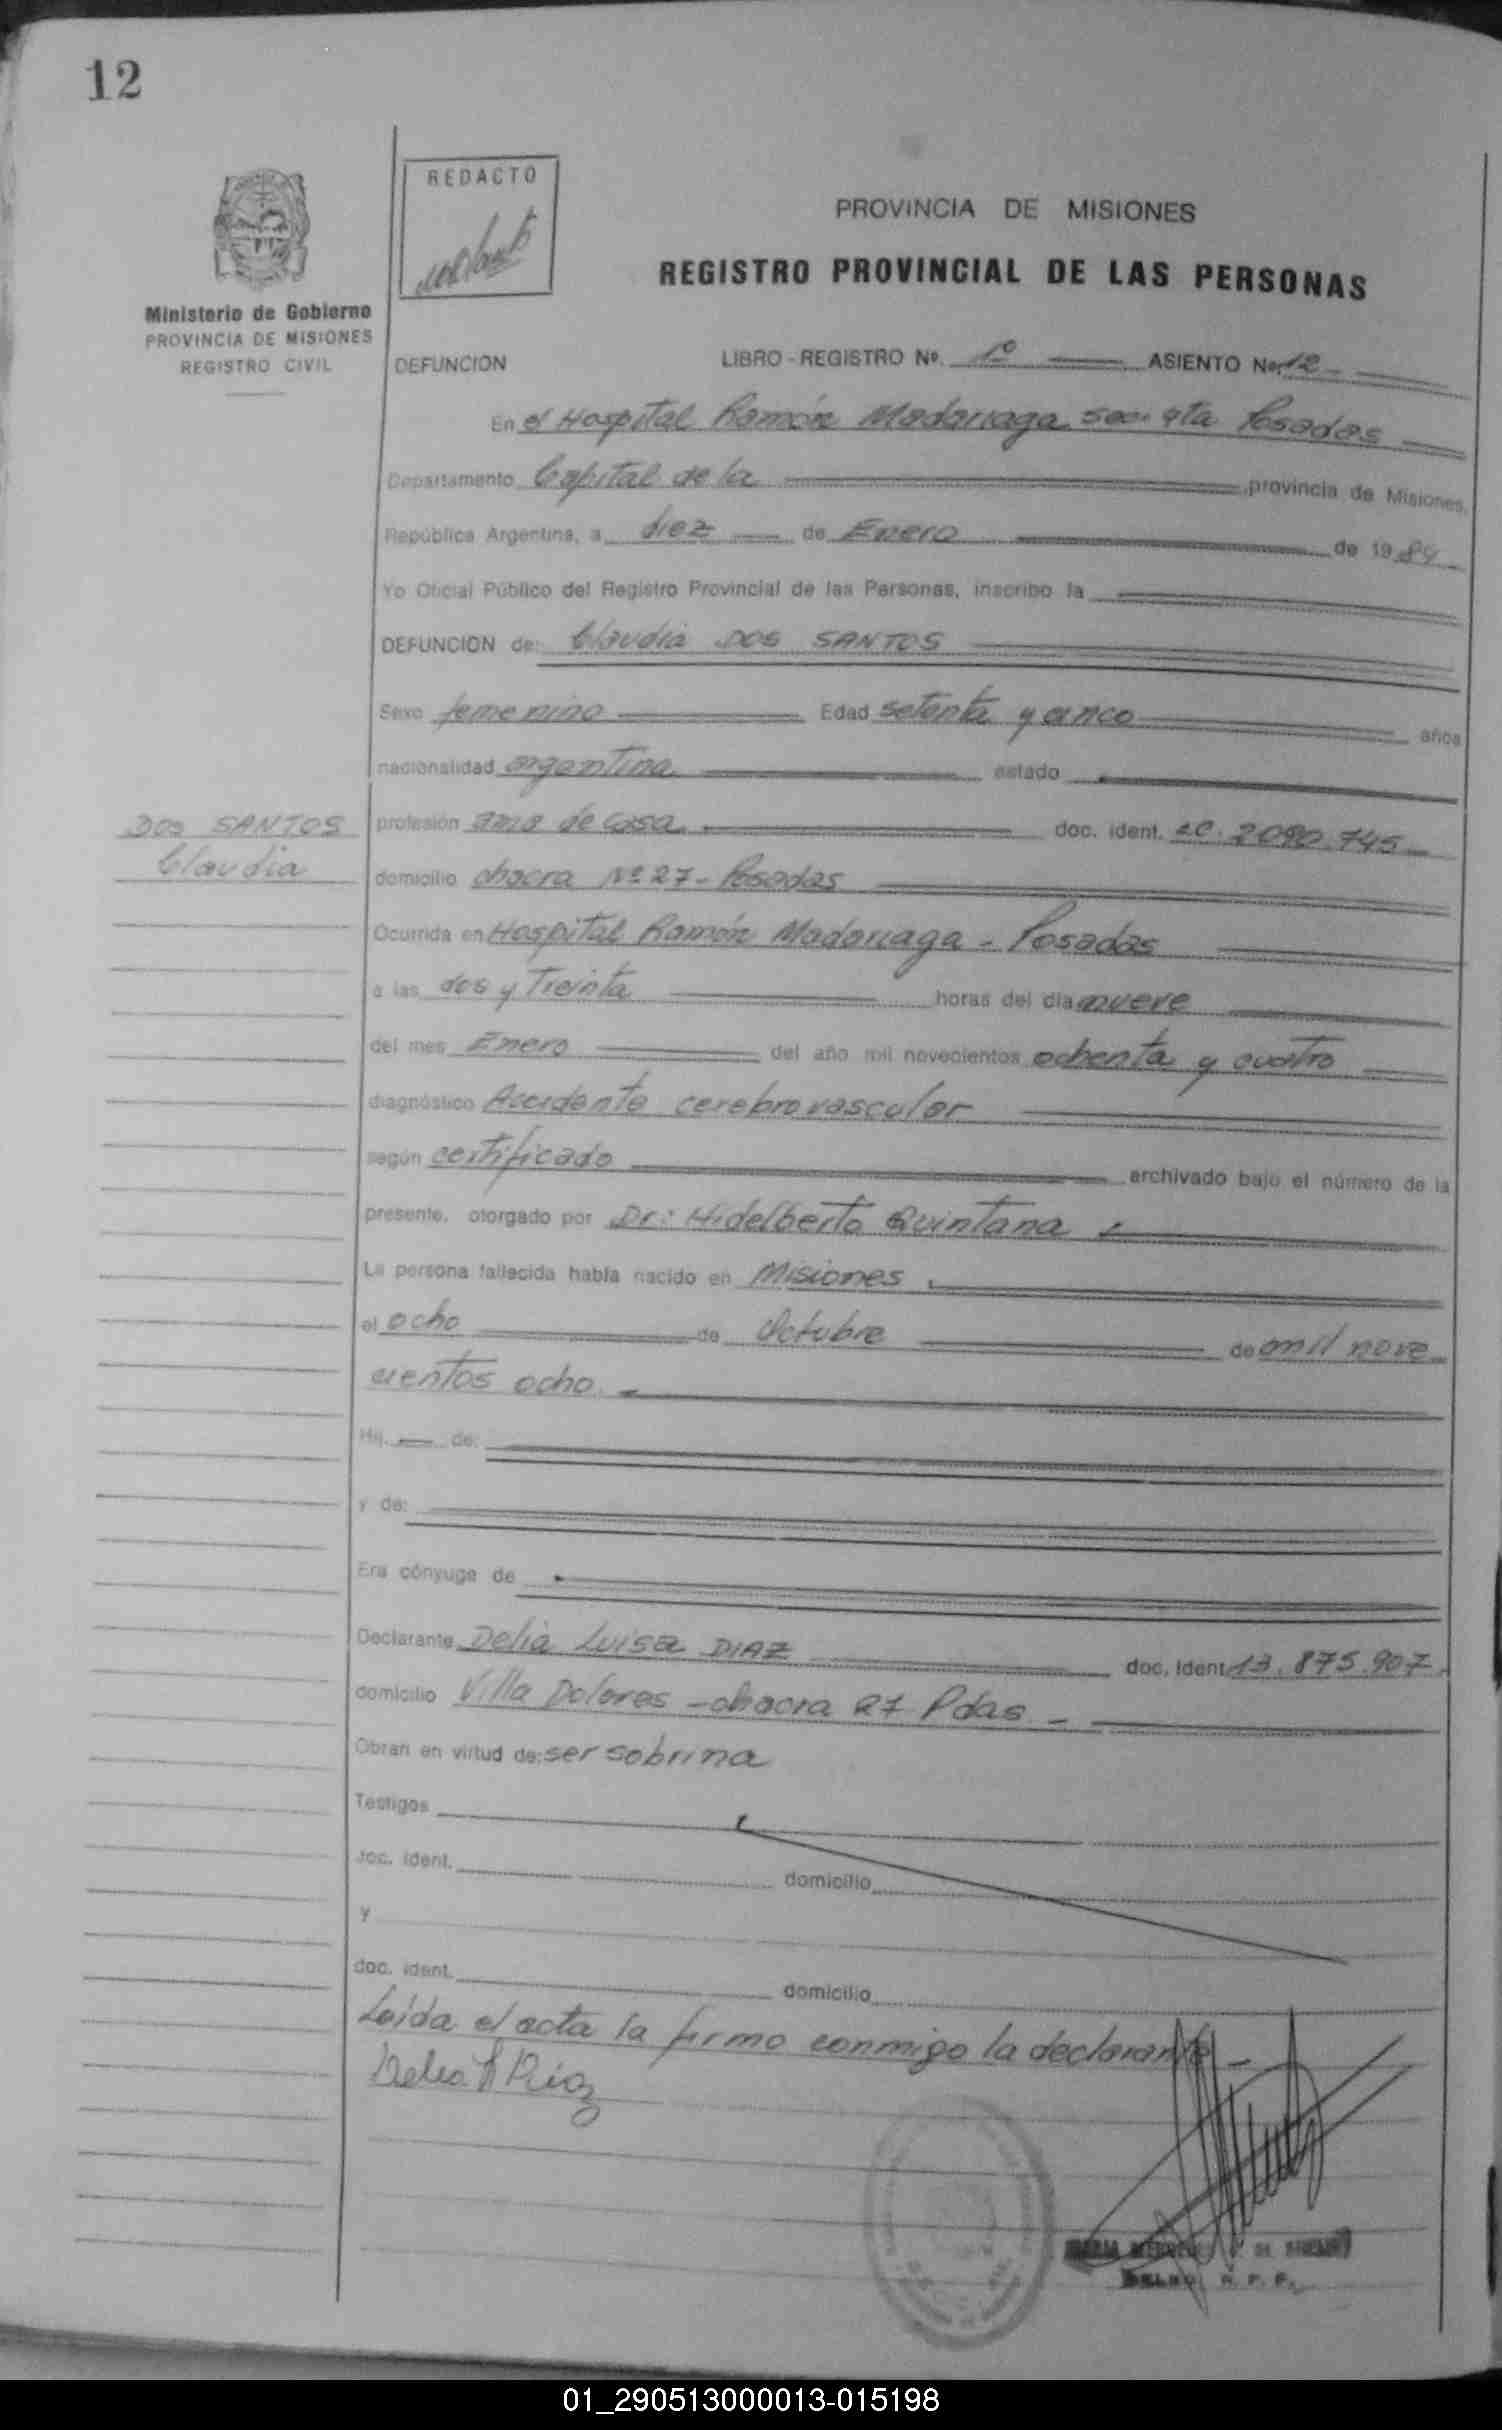 12
REDACTO
PROVINCIA DE MISIONES
REGISTRO PROVINCIAL DE LAS PERSONAS
Ministerio de Gobierno
PROVINCIA DE MISIONES
REGISTRO CIVIL
DEFUNCION LIBRO - REGISTRO Nº. 1º ASIENTO No. 12
En el Hospital Ramón Madariaga secc. 4ta Posadas
Departamento Capital de la provincia de Misiones,
República Argentina, a diez de Enero de 1984
Yo Oficial Público del Registro Provincial de las Personas, inscribo la
DEFUNCION de: Claudia DOS SANTOS
Sexo femenino Edad setenta y cinco años
nacionalidad argentina estado
DOS SANTOS
Claudia
profesión ama de casa doc. ident. LC. 2090.745
domicilio chacra Nº 27 - Posadas
Ocurrida en Hospital Ramón Madariaga - Posadas
a las dos y Treinta horas del día nueve
del mes Enero del año mil novecientos ochenta y cuatro
diagnóstico Accidente cerebrovascular
según certificado archivado bajo el número de la
presente, otorgado por Dr: Hidelberto Quintana
La persona fallecida había nacido en Misiones
el ocho de Octubre de mil nove
cientos ocho.
Hij de:
y de:
Era cónyuge de
Declarante Delia Luisa DIAZ doc. ident. 13.875.907
domicilio Villa Dolores - chacra 27 Pdas -
Obran en virtud de: ser sobrina
Testigos
doc. ident. domicilio
y
doc. ident. domicilio
Leída el acta la firma conmigo la declarante -
Delia Diaz
01_290513000013-015198